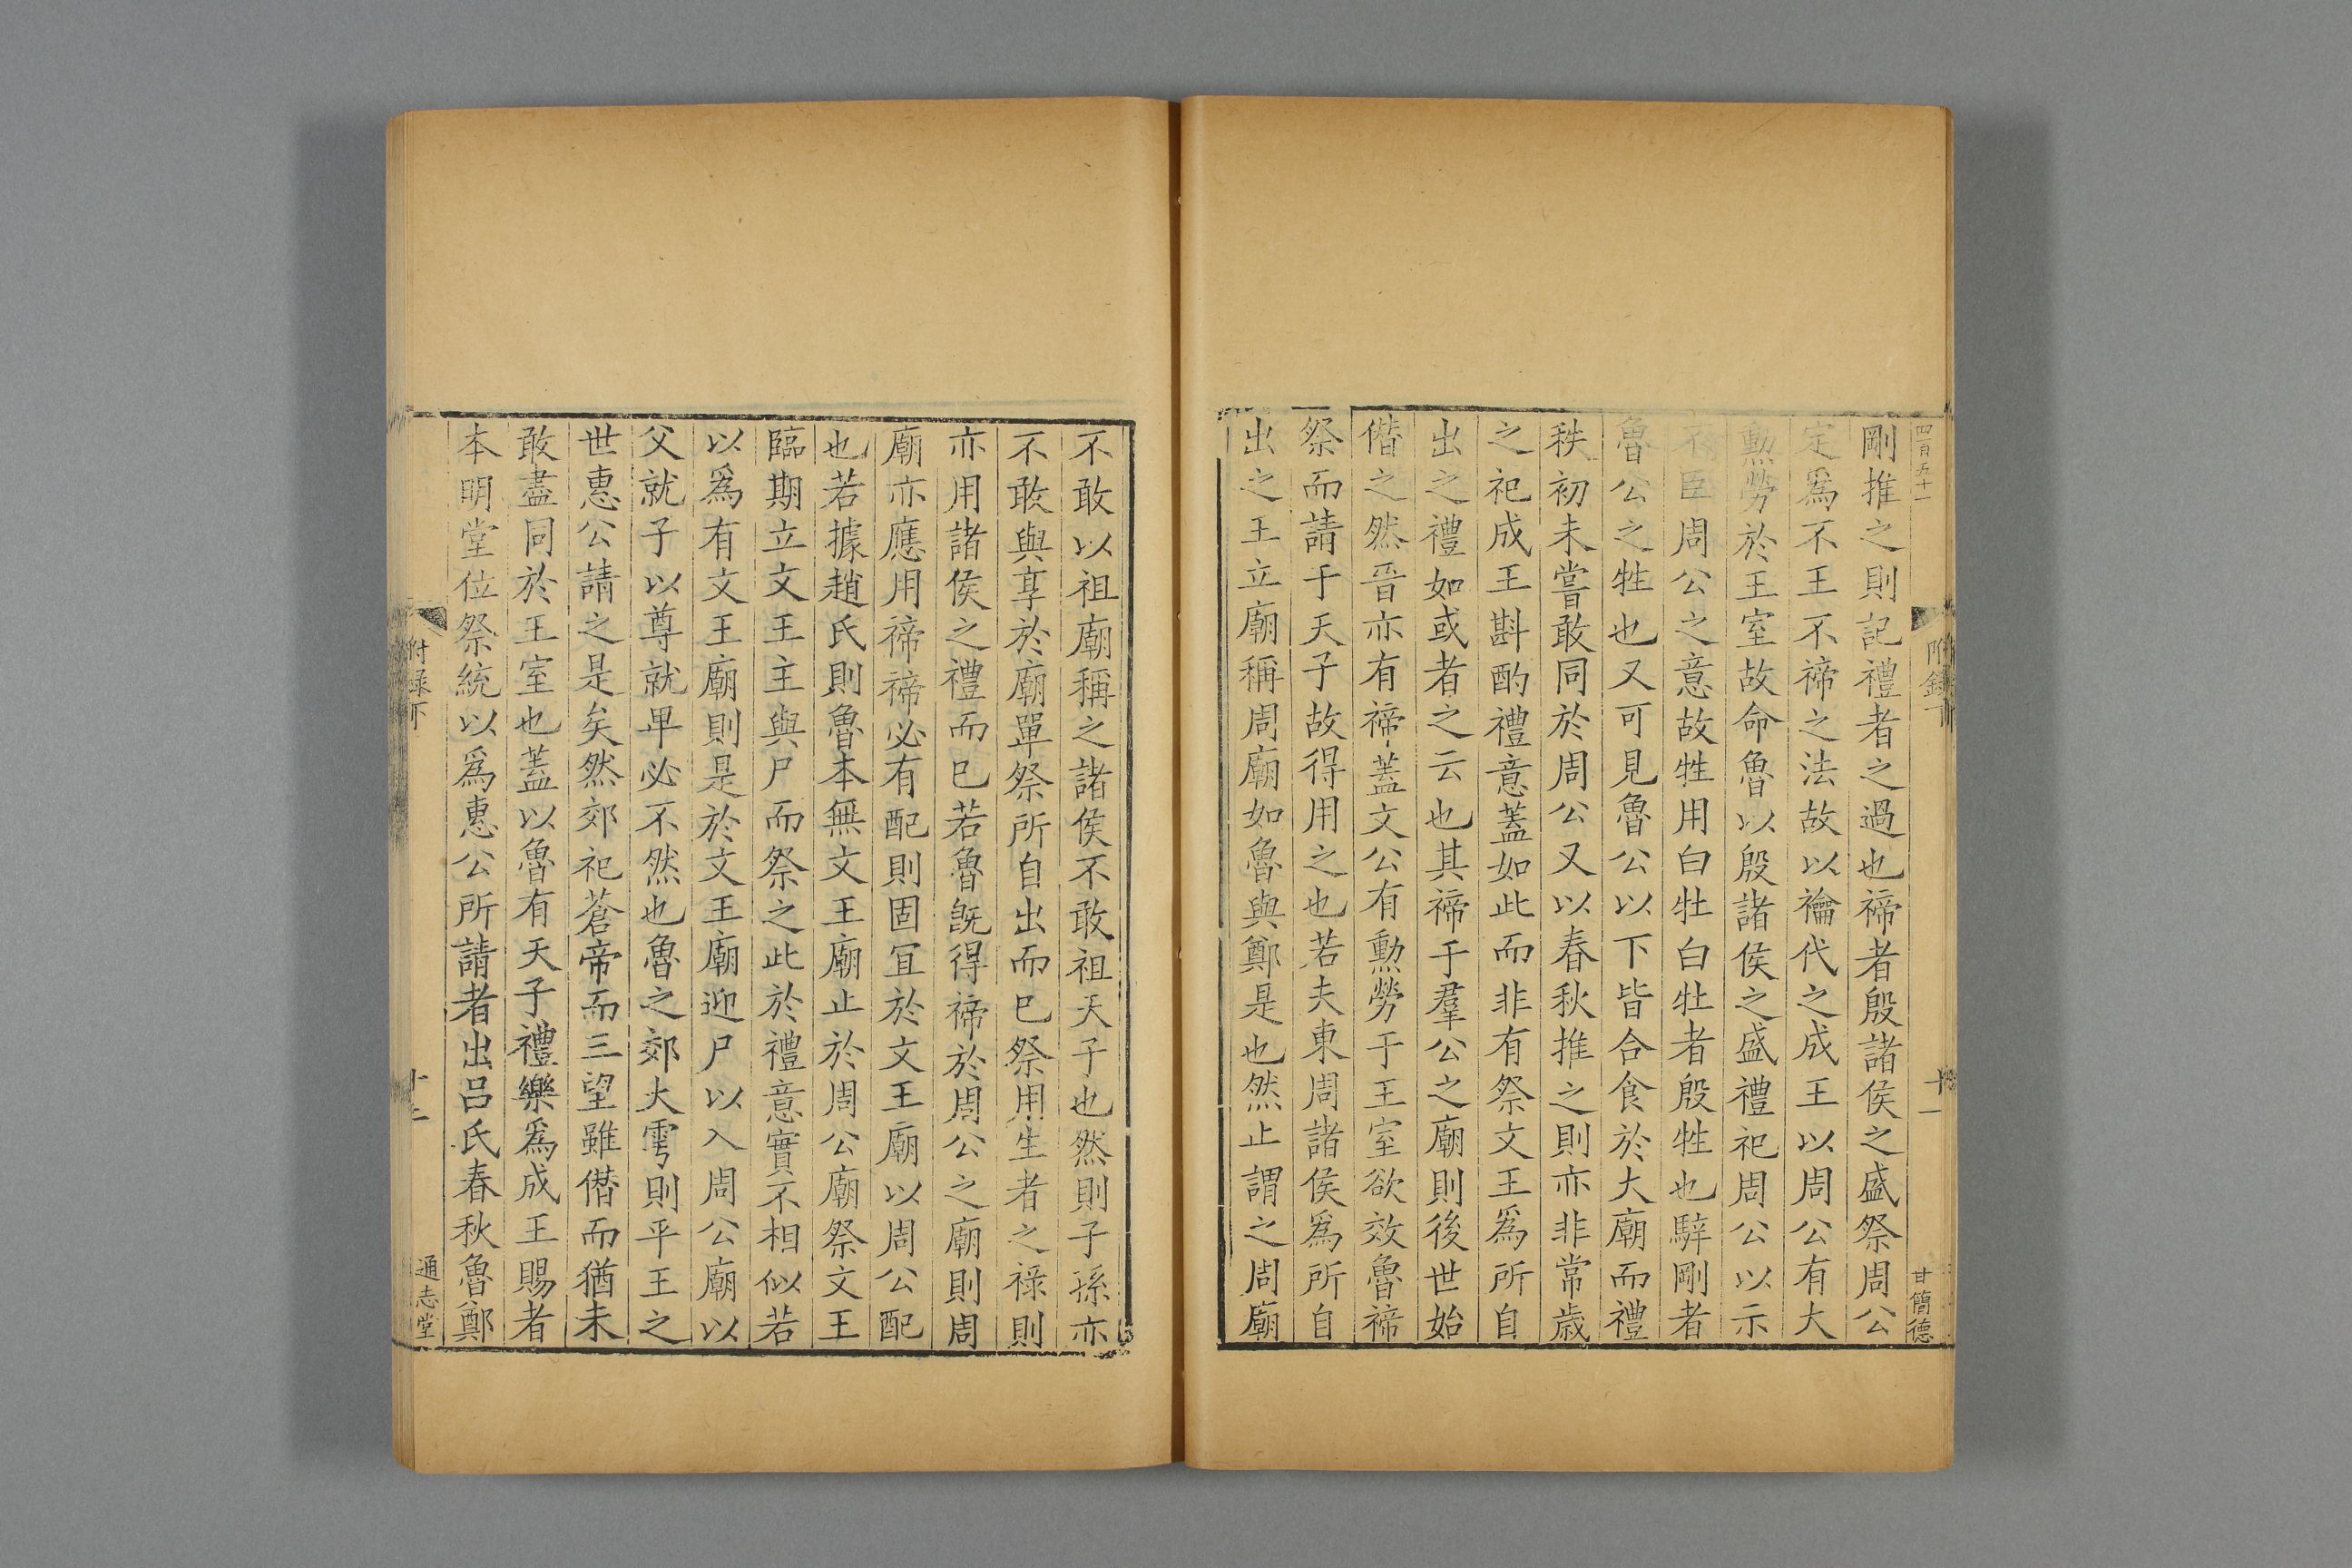 四百五十一
附錄下
十一
甘簡德
剛推之則記禮者之過也禘者殷諸侯之盛祭周公
定爲不王不禘之法故以禴代之成王以周公有大
勲勞於王室故命魯以殷諸侯之盛禮祀周公以示
不臣周公之意故牲用白牡白牡者殷牲也騂剛者
魯公之牲也又可見魯公以下皆合食於大廟而禮
秩初未嘗敢同於周公又以春秋推之則亦非常歲
之祀成王斟酌禮意蓋如此而非有祭文王爲所自
出之禮如或者之云也其禘于羣公之廟則後世始
僭之然晉亦有禘蓋文公有勲勞于王室欲效魯禘
祭而請于天子故得用之也若夫東周諸侯爲所自
出之王立廟稱周廟如魯與鄭是也然止謂之周廟
不敢以祖廟稱之諸侯不敢祖天子也然則子孫亦
不敢與享於廟單祭所自出而巳祭用生者之祿則
亦用諸侯之禮而巳若魯旣得禘於周公之廟則周
廟亦應用禘禘必有配則固冝於文王廟以周公配
也若據趙氏則魯本無文王廟止於周公廟祭文王
臨期立文王主與尸而祭之此於禮意實不相似若
以爲有文王廟則是於文王廟迎尸以入周公廟以
父就子以尊就卑必不然也魯之郊大雩則平王之
世惠公請之是矣然郊祀蒼帝而三望雖僭而猶未
敢盡同於王室也蓋以魯有天子禮樂爲成王賜者
本明堂位祭統以爲惠公所請者出呂氏春秋魯鄭
附錄下
十二
通志堂